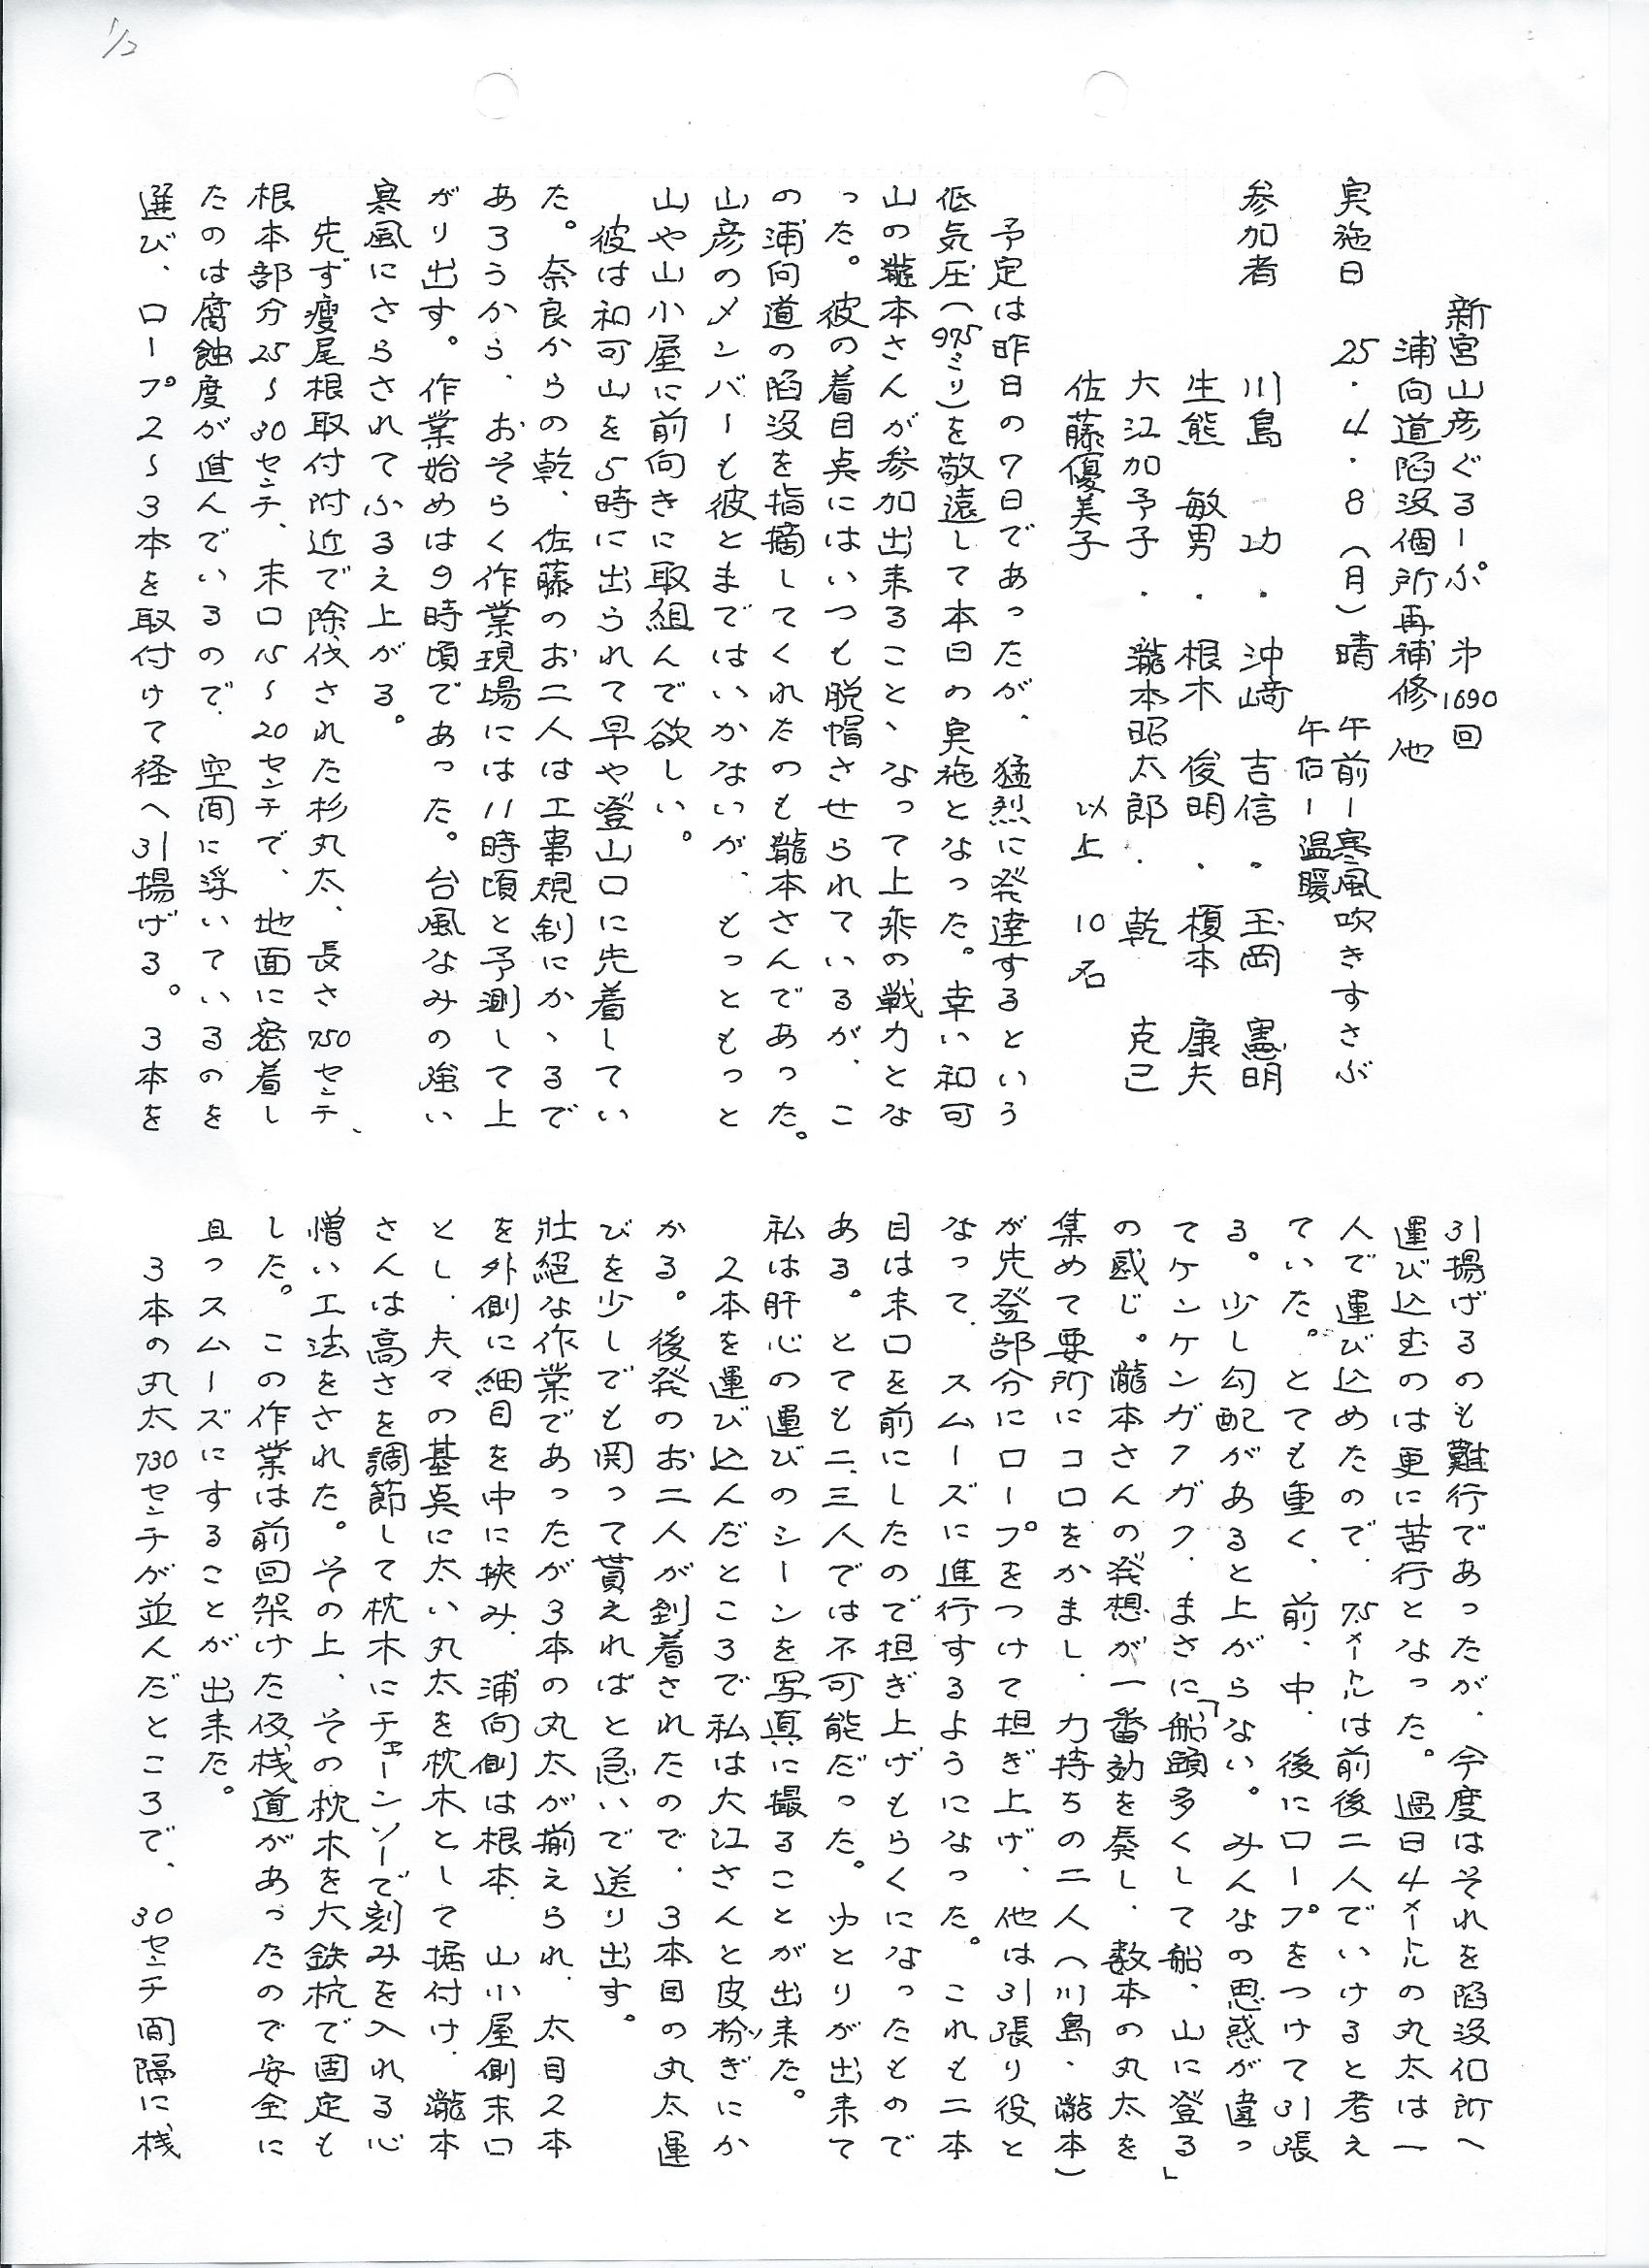 1/2
新宮山彦ぐるーぷ 第1690回
浦向道陥没個所再補修 他
実施日 25・4・8（月）晴 午前ー寒風吹きすさぶ
午后ー温暖
参加者 川島 功・沖﨑 吉信・玉岡 憲明
生熊 敏男・根木 俊明・榎本 康夫
大江加予子・瀧本昭太郎・乾 克己
佐藤優美子 以上 10名
予定は昨日の7日であったが、猛烈に発達するという
低気圧（975ミリ）を敬遠して本日の実施となった。幸い和可
山の瀧本さんが参加出来ること、なって上乗の戦力とな
った。彼の着目点にはいつも脱帽させられているが、こ
の浦向道の陥没を指摘してくれたのも瀧本さんであった。
山彦のメンバーも彼とまではいかないが、もっともっと
山や山小屋に前向きに取組んで欲しい。
彼は和可山を5時に出られて早や登山口に先着してい
た。奈良からの乾、佐藤のお二人は工事規制にかゝるで
あろうから、おそらく作業現場には11時頃と予測して上
がり出す。作業始めは9時頃であった。台風なみの強い
寒風にさらされてふるえ上がる。
先ず痩尾根取付附近で除伐された杉丸太、長さ750センチ、
根本部分25～30センチ、末口15～20センチで、地面に密着し
たのは腐蝕度が進んでいるので、空間に浮いているのを
選び、ロープ2～3本を取付けて径へ引揚げる。3本を
引揚げるのも難行であったが、今度はそれを陥没個所へ
運び込むのは更に苦行となった。過日4メートルの丸太は一
人で運び込めたので、7.5メートルは前後二人でいけると考え
ていた。とても重く、前、中、後にロープをつけて引張
る。少し勾配があると上がらない。みんなの思惑が違っ
てケンケンガクガク、まさに「船頭多くして船、山に登る」
の感じ。瀧本さんの発想が一番効を奏し、数本の丸太を
集めて要所にコロをかまし、力持ちの二人（川島、瀧本）
が先登部分にロープをつけて担ぎ上げ、他は引張り役と
なって、スムーズに進行するようになった。これも二本
目は末口を前にしたので担ぎ上げもらくになったもので
ある。とても二、三人では不可能だった。ゆとりが出来て
私は肝心の運びのシーンを写真に撮ることが出来た。
2本を運び込んだところで私は大江さんと皮枌ぎにか
かる。後発のお二人が到着されたので、3本目の丸太運
びを少しでも関って貰えればと急いで送り出す。
壮絶な作業であったが3本の丸太が揃えられ、太目2本
を外側に細目を中に挟み、浦向側は根本、山小屋側末口
とし、夫々の基点に太い丸太を枕木として据付け、瀧本
さんは高さを調節して枕木にチェーンソーで刻みを入れる心
憎い工法をされた。その上、その枕木を大鉄杭で固定も
した。この作業は前回架けた仮桟道があったので安全に
且つスムーズにすることが出来た。
3本の丸太730センチが並んだところで、30センチ間隔に桟